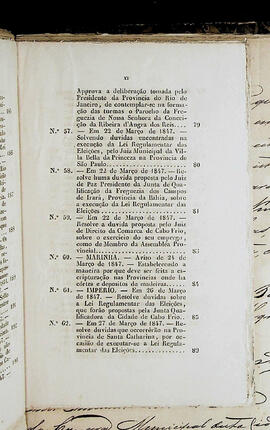 XI
Approva a deliberação tomada pelo
Presidente da Provincia do Rio de
Janeiro, de contemplar-se na forma-
ção das turmas o Parocho da Fre-
guezia de Nossa Senhora da Concei-
ção da Ribeira d'Angra dos Reis.... 79
N.º 57. — Em 22 de Março de 1847. —
Solvendo duvidas encontradas na
execução da Lei Regulamentar das
Eleições, pelo Juiz Municipal da Vil-
la Bella da Princeza na Provincia de
São Paulo.... 80
N.º 58. — Em 22 de Março de 1847. — Re-
solve huma duvida proposta pelo Juiz
de Paz Presidente da Junta de Qua-
lificação da Freguezia dos Campos
de Irará, Provincia da Bahia, sobre
a execução da Lei Regulamentar das
Eleições.... 81
N.º 59. — Em 22 de Março de 1847. —
Resolve a duvida proposta pelo Juiz
de Direito da Comarca de Cabo Frio,
sobre o exercicio do seu emprego,
como de Membro da Assembléa Pro-
vincial.... 83
N.º 60. — MARINHA. — Aviso de 24 de
Março de 1847. — Estabelecendo a
maneira por que deve ser feita a es-
cripturação nas Provincias onde ha
córtes e depositos de madeiras.... 84
N.º 61. — IMPERIO. — Em 26 de Março
de 1847. — Resolve duvidas sobre
a Lei Regulamentar das Eleições,
que forão propostas pela Junta Qua-
lificadora da Cidade de Cabo Frio. 85
N.º 62. — Em 27 de Março de 1847. — Re-
solve duvidas que occorrêrão na Pro-
vincia de Santa Catharina, por oc-
casião de executar-se a Lei Regula-
mentar das Eleições.... 89